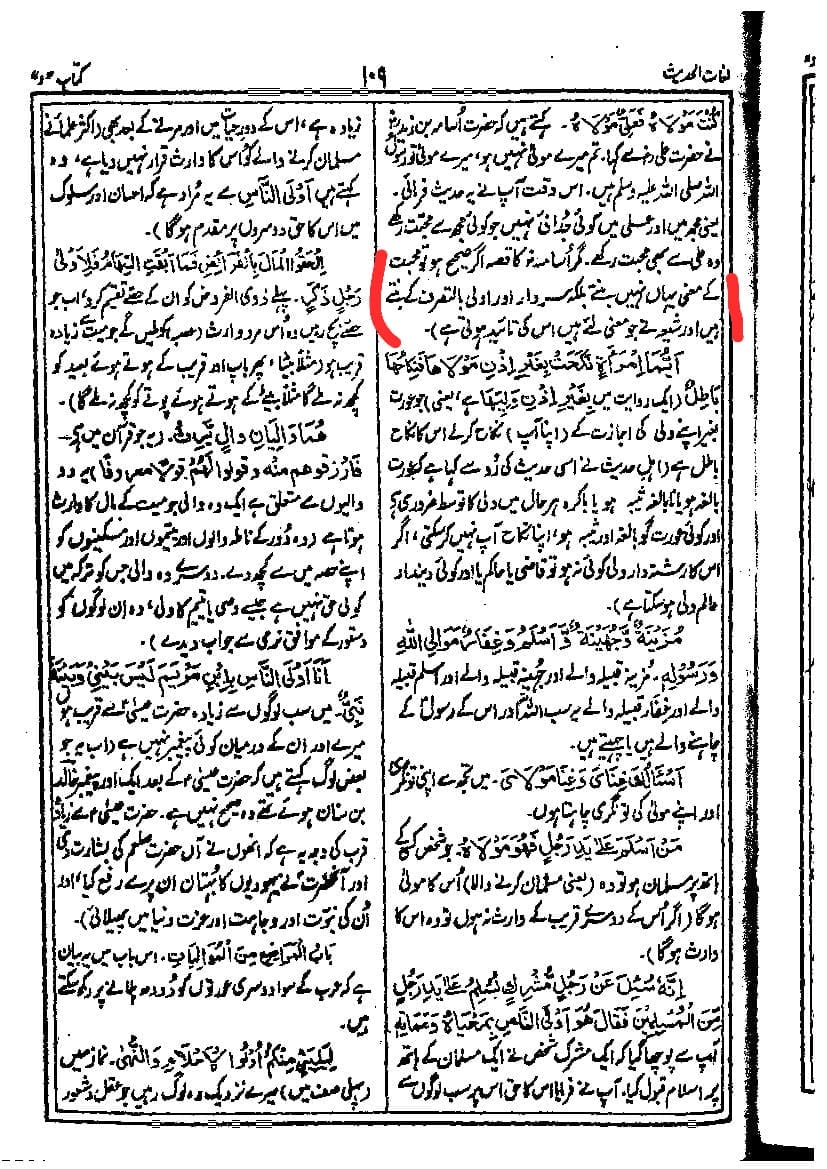 لغات الحدیث
۱۰۹
کتاب "و"
کُنْتُ مَوْلَاہُ فَعَلِیٌّ مَوْلَاہُ۔ کہتے ہیں کہ حضرت اُسامہ بن زیدؓ
نے حضرت علیؓ سے کہا۔ تم میرے مولیٰ نہیں ہو، میرے مولیٰ تو رسول
اللہ صلی اللہ علیہ وسلم ہیں۔ اس وقت آپ نے یہ حدیث فرمائی۔
یعنی مجھ میں اور علی میں کوئی جُدائی نہیں جو کوئی مجھ سے محبت رکھے
وہ علی سے بھی محبت رکھے۔ مگر اُسامہ رضہ کا قصہ اگر صحیح ہو تو محبت
کے معنی یہاں نہیں بنتے بلکہ سردار اور اولیٰ بالتصرف کے بنتے
ہیں اور شیعہ نے جو معنی لئے ہیں اس کی تائید ہوتی ہے)۔
اَیُّمَا اِمْرَأَۃٍ نَکَحَتْ بِغَیْرِ اِذْنِ مَوْلَاھَا فَنِکَاحُھَا
بَاطِلٌ (ایک روایت میں بِغَیْرِ اِذْنِ وَلِیِّھَا ہے، یعنی) جو عورت
بغیر اپنے ولی کی اجازت کے (اپنا آپ) نکاح کرلے اس کا نکاح
باطل ہے (اہلِ حدیث نے اسی حدیث کی رُو سے کہا ہے کہ عورت
بالغہ ہو یا نابالغہ ثیبہ ہو یا باکرہ ہر حال میں ولی کا توسط ضروری ہے
اور کوئی عورت گو بالغہ اور ثیبہ ہو، اپنا نکاح آپ نہیں کرسکتی، اگر
اس کا رشتہ دار ولی کوئی نہ ہو تو قاضی یا حاکم یا اور کوئی دیندار
عالم ولی ہوسکتا ہے)۔
مُزَیْنَۃُ وَجُھَیْنَۃُ وَ اَسْلَمُ وَغِفَارُ مَوَالِی اللہِ
وَرَسُوْلِہٖ۔ مُزینہ قبیلہ والے اور جُہینہ قبیلہ والے اور اسلم قبیلہ
والے اور غفار قبیلہ والے یہ سب اللہ اور اس کے رسولؐ کے
چاہنے والے ہیں یا چہیتے ہیں۔
اَسْئَالُکَ غِنَایَ وَغِنَا مَوْلَایَ۔ میں تجھ سے اپنی تونگری
اور اپنے مولیٰ کی تونگری چاہتا ہوں۔
مَنْ اَسْلَمَ عَلٰی یَدِ رَجُلٍ فَھُوَ مَوْلَاہُ۔ جو شخص کسی کے
ہاتھ پر مسلمان ہو تو وہ (یعنی مسلمان کرنے والا) اُس کا مولیٰ
ہوگا (اگر اُس کے دوسرے قریب کے وارث نہ ہوں تو وہ اس کا
وارث ہوگا)۔
اِنَّہٗ سُئِلَ عَنْ رَجُلٍ مُّشْرِکٍ یُسْلِمُ عَلٰی یَدِ رَجُلٍ
مِّنَ الْمُسْلِمِیْنَ فَقَالَ ھُوَ اَوْلَی النَّاسِ بِمَحْیَاہُ وَمَمَاتِہٖ
آپ سے پوچھا گیا کہ ایک مشرک شخص نے ایک مسلمان کے ہاتھ
پر اسلام قبول کیا۔ آپ نے فرمایا اس کا حق اس پر سب لوگوں سے
زیادہ ہے، اس کے دورِ حیات میں اور مرنے کے بعد بھی (اکثر علماء نے
مسلمان کرنے والے کو اُس کا وارث قرار نہیں دیا ہے، وہ
کہتے ہیں اَوْلَی النَّاسِ سے یہ مُراد ہے کہ احسان اور سلوک
میں اس کا حق دوسروں پر مقدم ہوگا)۔
اَلْحِقُوا الْمَالَ بِالْفَرَائِضِ فَمَا اَبْقَتِ السِّھَامُ فَلِاَوْلٰی
رَجُلٍ ذَکَرٍ۔ پہلے ذوی الفروض کو ان کے حصے تقسیم کردو، اب جو
حصے بچ رہیں وہ اُس مرد وارث (عصبہ) کو ملیں گے جو میت سے زیادہ
قریب ہو (مثلاً بیٹا، پھر باپ اور قریب کے ہوتے ہوئے بعید کو
کچھ نہ ملے گا مثلاً بیٹے کے ہوتے ہوئے پوتے کو کچھ نہ ملے گا)۔
ھُمَا وَالِیَانِ وَالٍ یَّرِثُ۔ (یہ جو قرآن میں ہے۔
فَارْزُقُوْھُمْ مِنْہُ وَقُوْلُوْا لَھُمْ قَوْلًا مَعْرُوْفًا) یہ دو
والیوں سے متعلق ہے ایک وہ والی جو میت کے مال کا وارث
ہوتا ہے (وہ دُور کے ناطہ والوں اور یتیموں اور مسکینوں کو
اپنے حصہ میں سے کچھ دے۔ دوسرے وہ والی جس کو ترکہ میں
کوئی حق نہیں ہے جیسے وصی یا یتیم کا ولی، وہ ان لوگوں کو
دستور کے موافق نرمی سے جواب دیدے)۔
اَنَا اَوْلَی النَّاسِ بِابْنِ مَرْیَمَ لَیْسَ بَیْنِیْ وَبَیْنَہٗ
نَبِیٌّ۔ میں سب لوگوں سے زیادہ حضرت عیسیٰؑ سے قریب ہوں
میرے اور ان کے درمیان کوئی پیغمبر نہیں ہے (اب یہ جو
بعض لوگ کہتے ہیں کہ حضرت عیسیٰ ؑ کے بعد ایک اور پیغمبر خالد
بن سنان ہوئے تھے وہ صحیح نہیں ہے۔ حضرت عیسیٰ ؑ سے زیادہ
قرب کی وجہ یہ ہے کہ انھوں نے آں حضرت صلعم کی بشارت دی
اور آنحضرتؐ نے یہودیوں کا بُہتان ان پر سے رفع کیا، اور
اُن کی نبوّت اور وجاہت اور عزت دنیا میں پھیلائی)۔
بَابُ الْمَرَاضِعِ مِنَ الْمُوَالِیَاتِ۔ اس باب میں یہ بیان
ہے کہ عرب کے سوا دوسری عورتوں کو دُودھ پلانے پر رکھ سکتے
ہیں۔
لِیَلِیَنِّیْ مِنْکُمْ اُولُوا الْاَحْلَامِ وَالنُّھٰی۔ نماز میں
(پہلی صف میں) میرے نزدیک وہ لوگ رہیں جو عقل و شعور